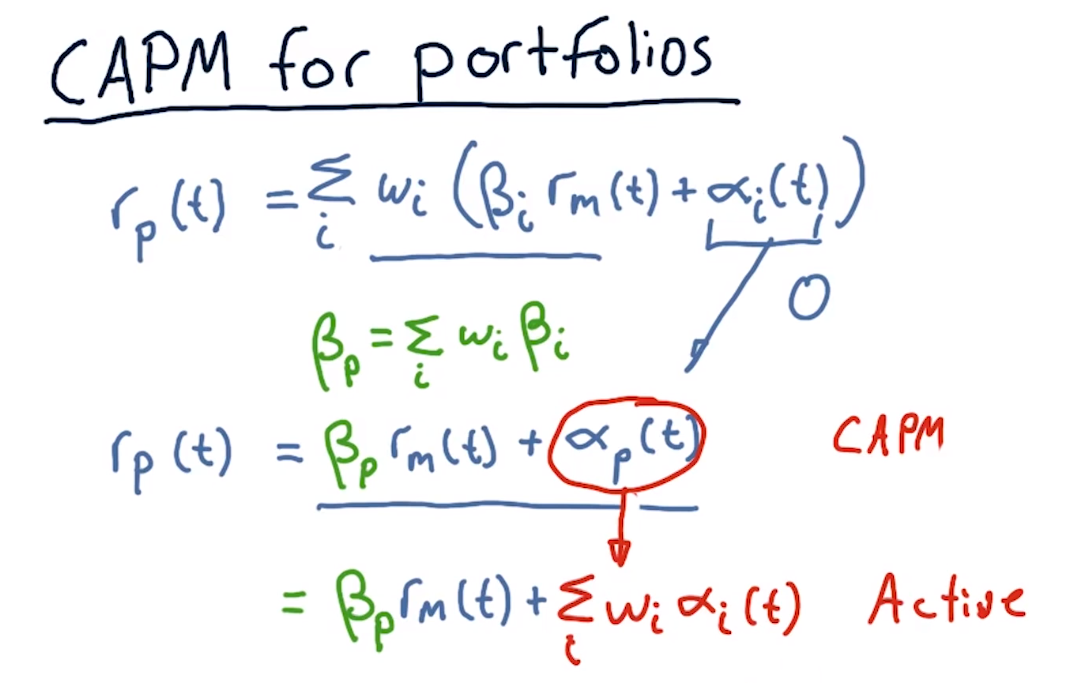 CAPM for portfolios
rₚ(t) = Σᵢ wᵢ (βᵢ rₘ(t) + αᵢ(t))
0
βₚ = Σᵢ wᵢ βᵢ
rₚ(t) = βₚ rₘ(t) + αₚ(t) CAPM
= βₚ rₘ(t) + Σᵢ wᵢ αᵢ(t) Active